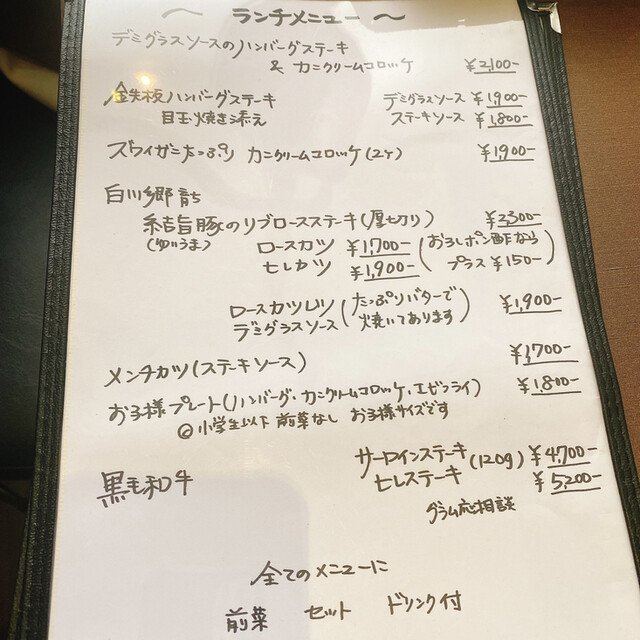 ～ ランチメニュー ～
デミグラスソースのハンバーグステーキ
& カニクリームコロッケ ¥2,100-
鉄板ハンバーグステーキ デミグラスソース ¥1,900-
目玉焼き添え ステーキソース ¥1,800-
ズワイガニたっぷり カニクリームコロッケ(2ケ) ¥1,900-
白川郷育ち
結旨豚のリブロースステーキ(厚切り) ¥2,300-
(ゆいうま) ロースカツ ¥1,700- (おろしポン酢なら
ヒレカツ ¥1,900- プラス ¥150-)
ロースカツレツ (たっぷりバターで ¥1,900-
デミグラスソース 焼いてあります)
メンチカツ(ステーキソース) ¥1,700-
お子様プレート(ハンバーグ・カニクリームコロッケ、エビフライ) ¥1,800-
◎小学生以下 前菜なし お子様サイズです
サーロインステーキ (120g) ¥4,700-
黒毛和牛 ヒレステーキ ¥5,200-
グラム応相談
全てのメニューに
前菜 セット ドリンク付